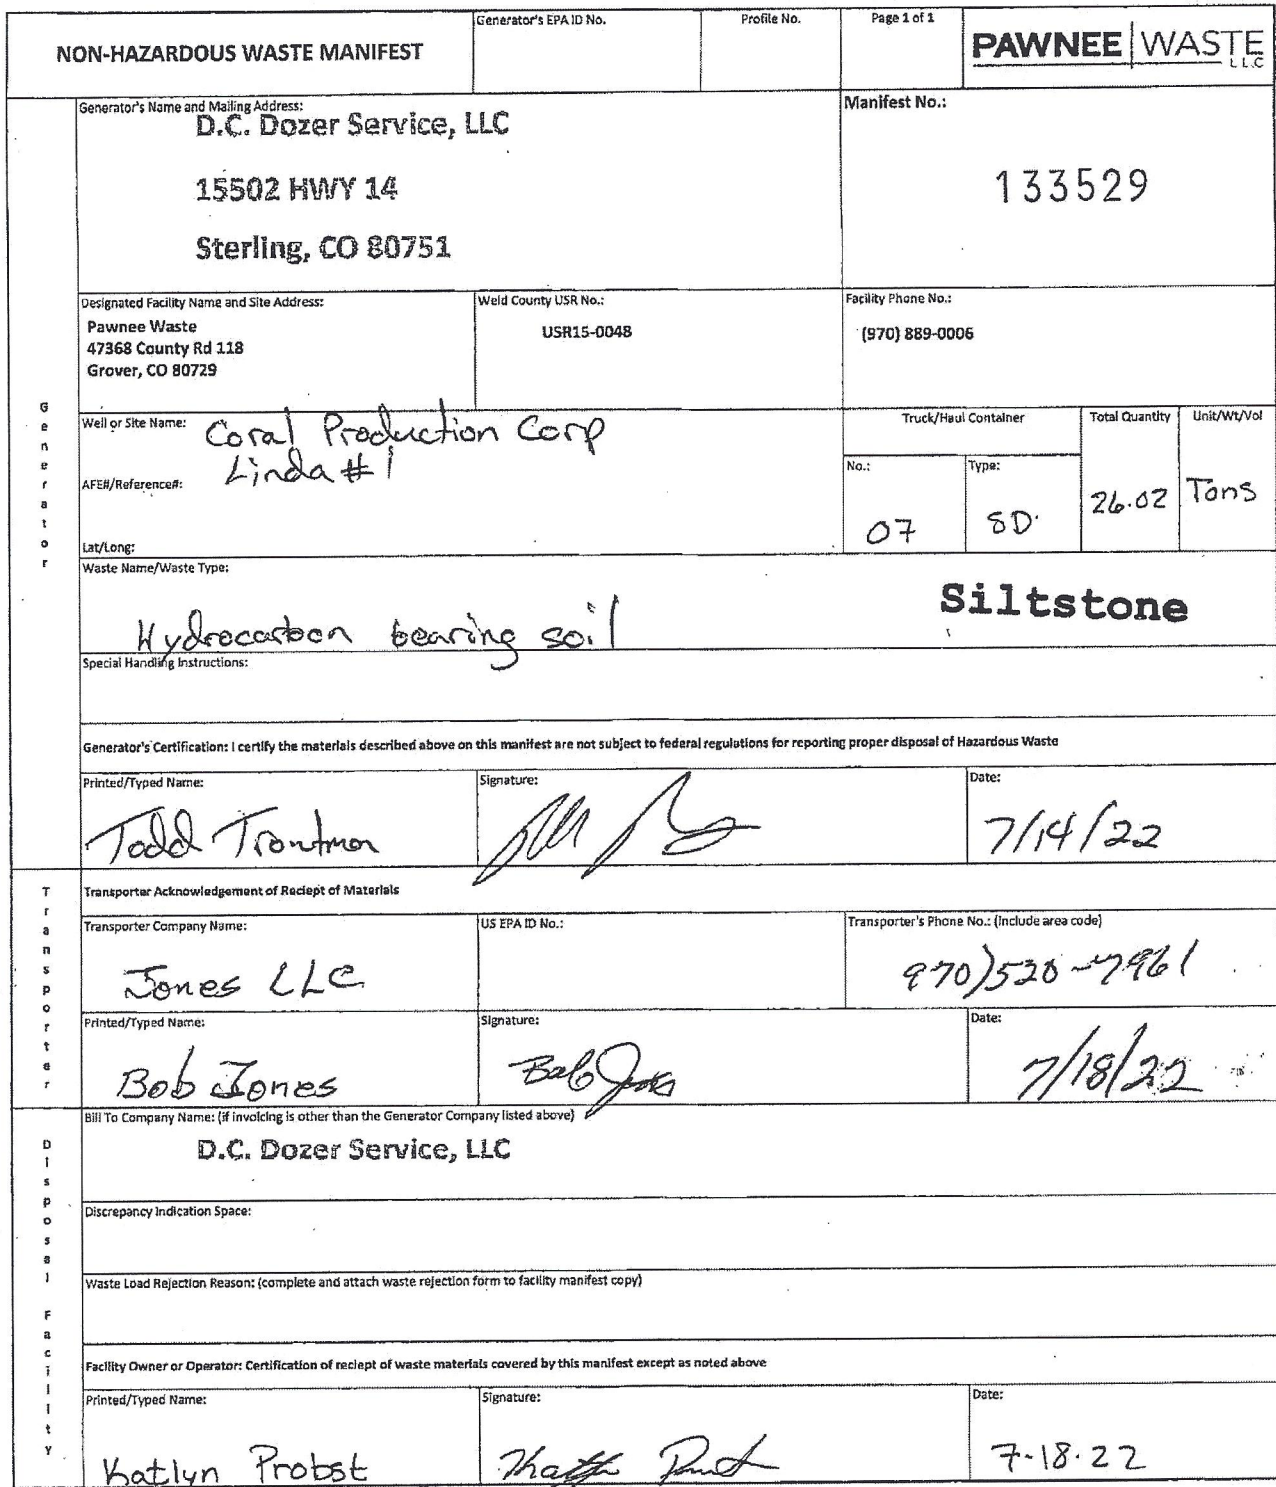 NON-HAZARDOUS WASTE MANIFEST
Generator's EPA ID No.
Profile No.
Page 1 of 1
PAWNEE WASTE
LLC
Generator's Name and Mailing Address:
D.C. Dozer Service, LLC
15502 HWY 14
Sterling, CO 80751
Manifest No.:
133529
Designated Facility Name and Site Address:
Pawnee Waste
47368 County Rd 118
Grover, CO 80729
Weld County USR No.:
USR15-0048
Facility Phone No.:
(970) 889-0006
Generator
Well or Site Name: Coral Production Corp
Linda #1
AFE#/Reference#:
Lat/Long:
Truck/Haul Container
No.:
07
Type:
SD.
Total Quantity
26.02
Unit/Wt/Vol
Tons
Waste Name/Waste Type:
Hydrocarbon bearing soil
Siltstone
Special Handling Instructions:
Generator's Certification: I certify the materials described above on this manifest are not subject to federal regulations for reporting proper disposal of Hazardous Waste
Printed/Typed Name:
Todd Troutman
Signature:
Date:
7/14/22
Transporter
Transporter Acknowledgement of Reciept of Materials
Transporter Company Name:
Jones LLC
US EPA ID No.:
Transporter's Phone No.: (include area code)
970)520-7961
Printed/Typed Name:
Bob Jones
Signature:
Bob Jones
Date:
7/18/22
Disposal Facility
Bill To Company Name: (if invoicing is other than the Generator Company listed above)
D.C. Dozer Service, LLC
Discrepancy Indication Space:
Waste Load Rejection Reason: (complete and attach waste rejection form to facility manifest copy)
Facility Owner or Operator: Certification of reciept of waste materials covered by this manifest except as noted above
Printed/Typed Name:
Katlyn Probst
Signature:
Date:
7-18-22